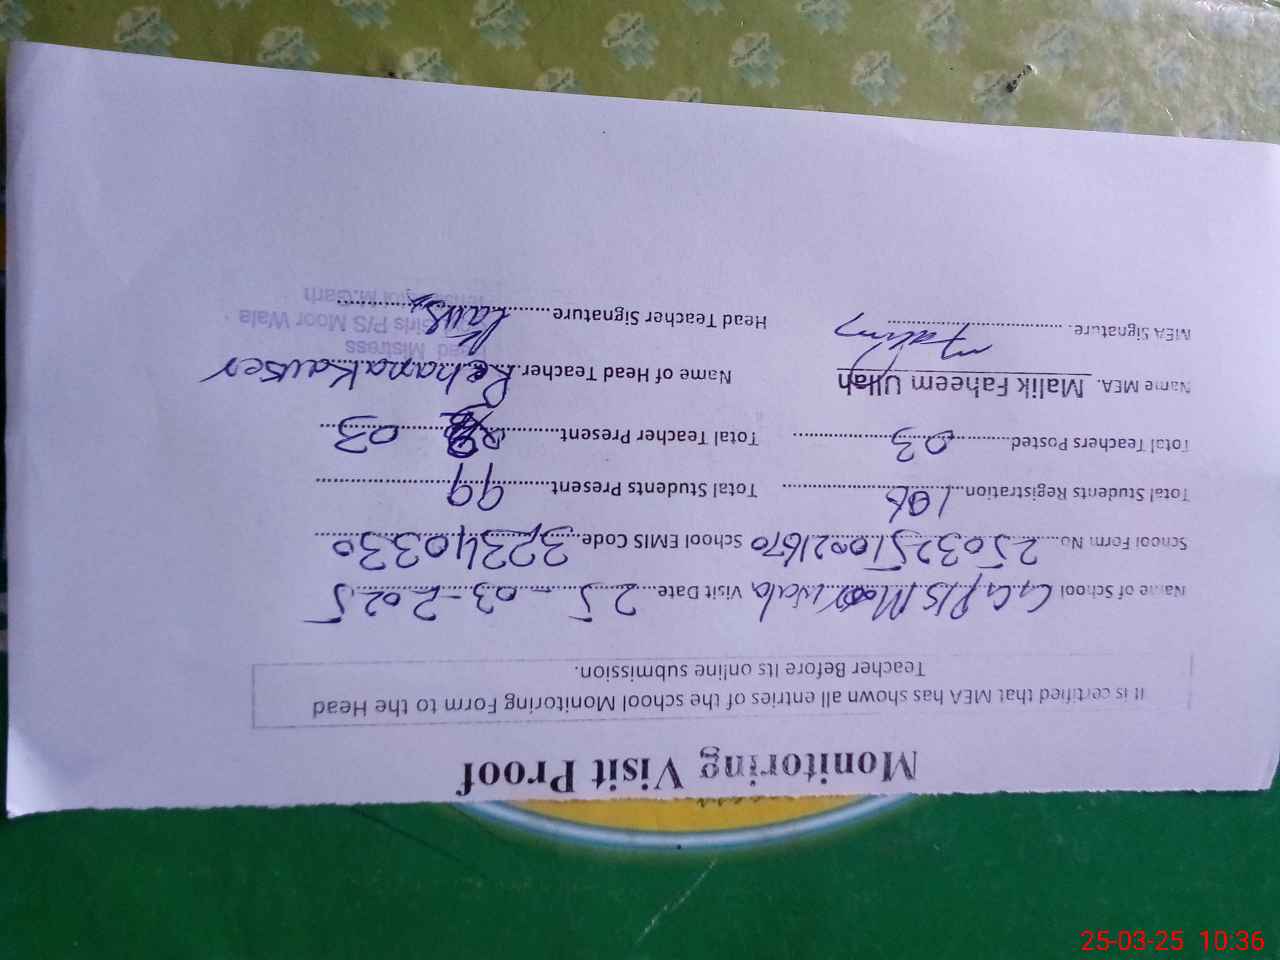 Monitoring Visit Proof
It is certified that MEA has shown all entries of the school Monitoring Form to the Head
Teacher Before its online submission.
Name of School G.G P/S Moor wala Visit Date 25-03-2025
School Form No. 25032510021670 School EMIS Code 32340330
Total Students Registration 106 Total Students Present 99
Total Teachers Posted 03 Total Teacher Present 03
Name MEA. Malik Faheem Ullah Name of Head Teacher. Rehana Kauser
MEA Signature. Head Teacher Signature
Head Mistress
Girls P/S Moor Wala
M.Garh
25-03-25 10:36